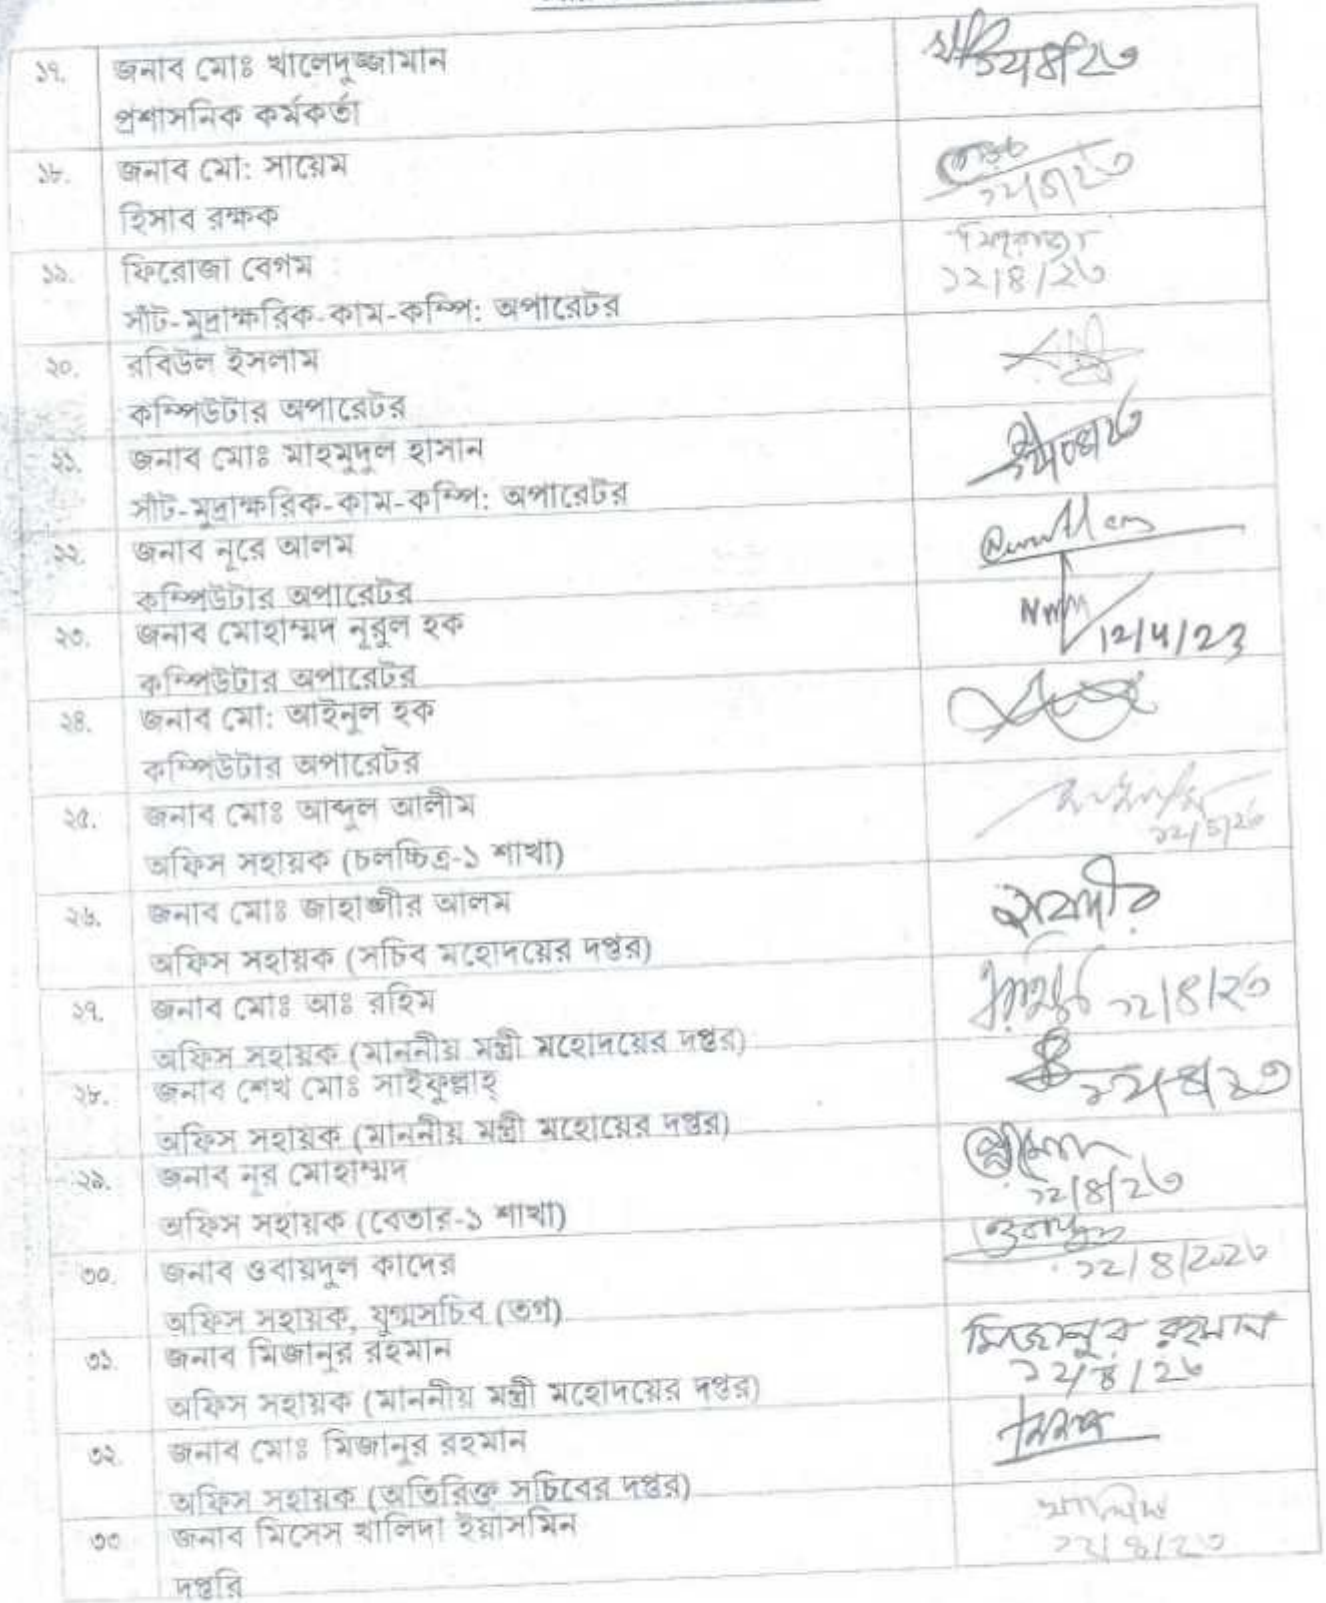 ১৭. জনাব মোঃ খালেদুজ্জামান
প্রশাসনিক কর্মকর্তা
১২/৪/২৩
১৮. জনাব মো: সায়েম
হিসাব রক্ষক
১২/৪/২৩
১৯. ফিরোজা বেগম
সাঁট-মুদ্রাক্ষরিক-কাম-কম্পি: অপারেটর
ফিরোজা
১২/৪/২৩
২০. রবিউল ইসলাম
কম্পিউটার অপারেটর
২১. জনাব মোঃ মাহমুদুল হাসান
সাঁট-মুদ্রাক্ষরিক-কাম-কম্পি: অপারেটর
২২. জনাব নূরে আলম
কম্পিউটার অপারেটর
২৩. জনাব মোহাম্মদ নূরুল হক
কম্পিউটার অপারেটর
12/4/23
২৪. জনাব মো: আইনুল হক
কম্পিউটার অপারেটর
২৫. জনাব মোঃ আব্দুল আলীম
অফিস সহায়ক (চলচ্চিত্র-১ শাখা)
১২/৪/২৩
২৬. জনাব মোঃ জাহাঙ্গীর আলম
অফিস সহায়ক (সচিব মহোদয়ের দপ্তর)
২৭. জনাব মোঃ আঃ রহিম
অফিস সহায়ক (মাননীয় মন্ত্রী মহোদয়ের দপ্তর)
১২/৪/২৩
২৮. জনাব শেখ মোঃ সাইফুল্লাহ্
অফিস সহায়ক (মাননীয় মন্ত্রী মহোয়ের দপ্তর)
১২/৪/২৩
২৯. জনাব নূর মোহাম্মদ
অফিস সহায়ক (বেতার-১ শাখা)
১২/৪/২৩
৩০. জনাব ওবায়দুল কাদের
অফিস সহায়ক, যুগ্মসচিব (তগ)
১২/৪/২০২৩
৩১. জনাব মিজানুর রহমান
অফিস সহায়ক (মাননীয় মন্ত্রী মহোদয়ের দপ্তর)
মিজানুর রহমান
১২/৪/২৩
৩২. জনাব মোঃ মিজানুর রহমান
অফিস সহায়ক (অতিরিক্ত সচিবের দপ্তর)
৩৩ জনাব মিসেস খালিদা ইয়াসমিন
দপ্তরি
খালিদা
১২/৪/২৩